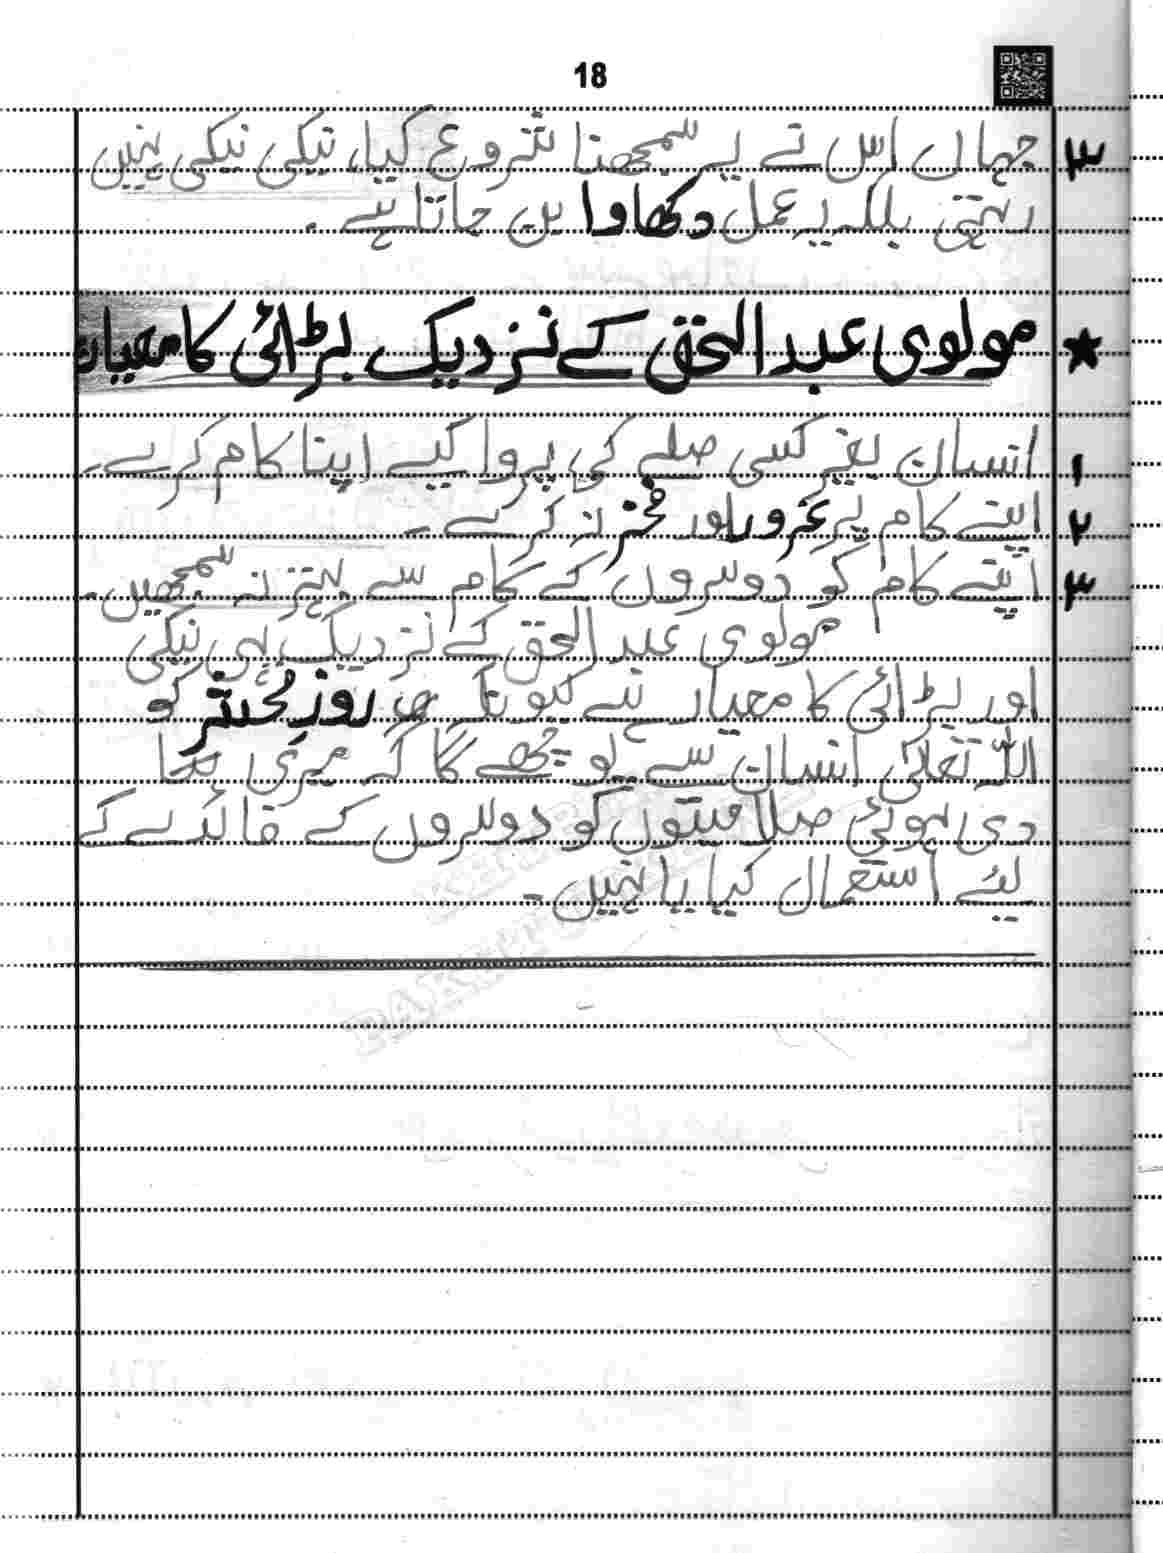 18
۳ جہاں اس نے یہ سمجھنا شروع کیا، نیکی نیکی نہیں
رہتی بلکہ یہ عمل دکھاوا بن جاتا ہے .
★ مولوی عبدالحق کے نزدیک بڑائی کا معیار
۱ انسان بغیر کسی صلے کی پروا کیے اپنا کام کرے۔
۲ اپنے کام پر غرور اور فخر نہ کرے ۔
۳ اپنے کام کو دوسروں کے کام سے بہتر نہ سمجھیں۔
مولوی عبدالحق کے نزدیک یہی نیکی
اور بڑائی کا معیار ہے کیونکہ روزِ محشر کو
اللہ تعالیٰ انسان سے پوچھے گا کہ میری
دی ہوئی صلاحیتوں کو دوسروں کے فائدے کے
لئے استعمال کیا یا نہیں ۔